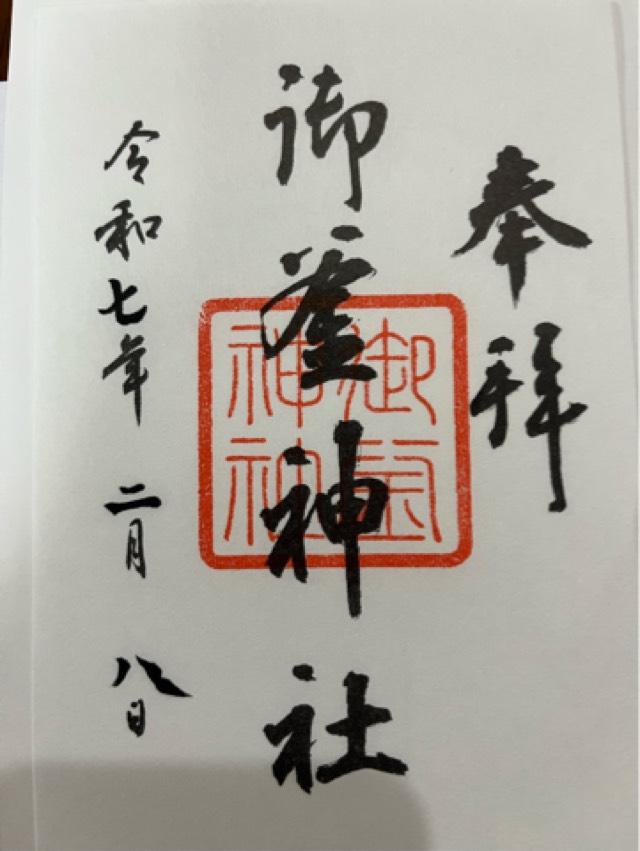 奉拝
御釜神社
御釜
神社
令和七年二月八日